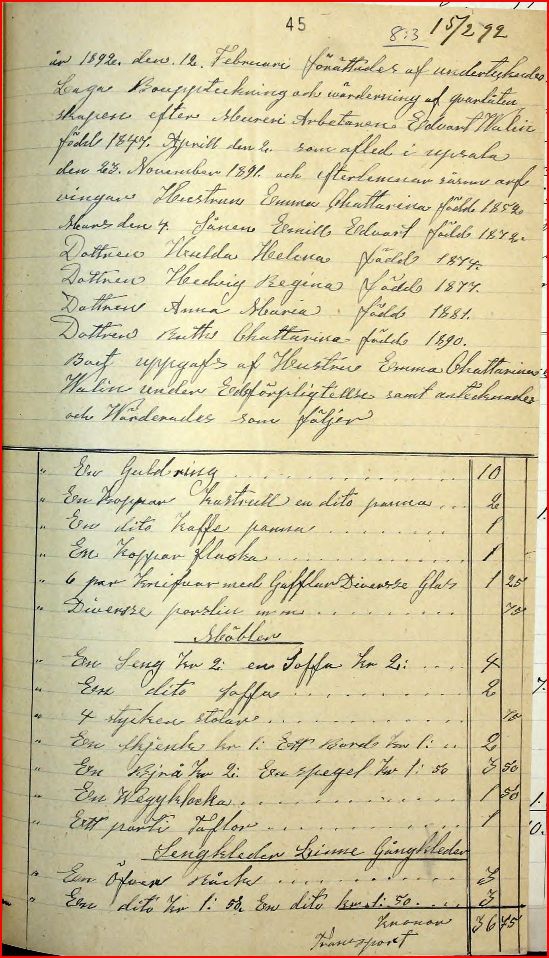 45
8:3 15/2 92
år 1892. den. 12. Februari förättades af undertecknades
Laga Bouppteckning och wärdering af qvarlåten
skapen efter Mureri Arbetaren Edvart Walin
född 1847. Aprill den 2. som afled i upsala
den 23. November 1891. och efterlemnar såsom arf
vingar Hustrun Emma Chattarina född 1852
Mars den 4. Sånen Emill Edvart född 1872.
Dottren Hulda Helena född 1874.
Dottren Hedvig Regina född 1877.
Dottren Anna Maria född 1881.
Dottren Ruth Chattarina född 1890.
Boet uppgafs af Hustrun Emma Chattarina
Walin under Edsförpligtellse samt antecknades
och Wärderades som följer
" En Guldring 10
" En Koppar Kastrull en dito panna 2
" En dito Kaffe panna 1
" En Koppar flaska 1
" 6 par Knifvar med Gafflar Diversse Glas 1 25
" Diversse porslin m m
Möbler
" En Seng Kr 2: en Soffa Kr 2: 4
" Em dito Soffa 2
" 4 stycken stolar
" En skjenk kr 1: Ett Bord Kr 1: 2
" En Byrå Kr 2: En spegel Kr 1: 50 3 50
" En Wegyklocka 1 50
" Ett parti Taflor 1
Sengkleder Linne Gångkleder
" En Öfver Råck 3
" En dito Kr 1: 50. En dito kr. 1: 50. 3
Kronor 36 75
Transport